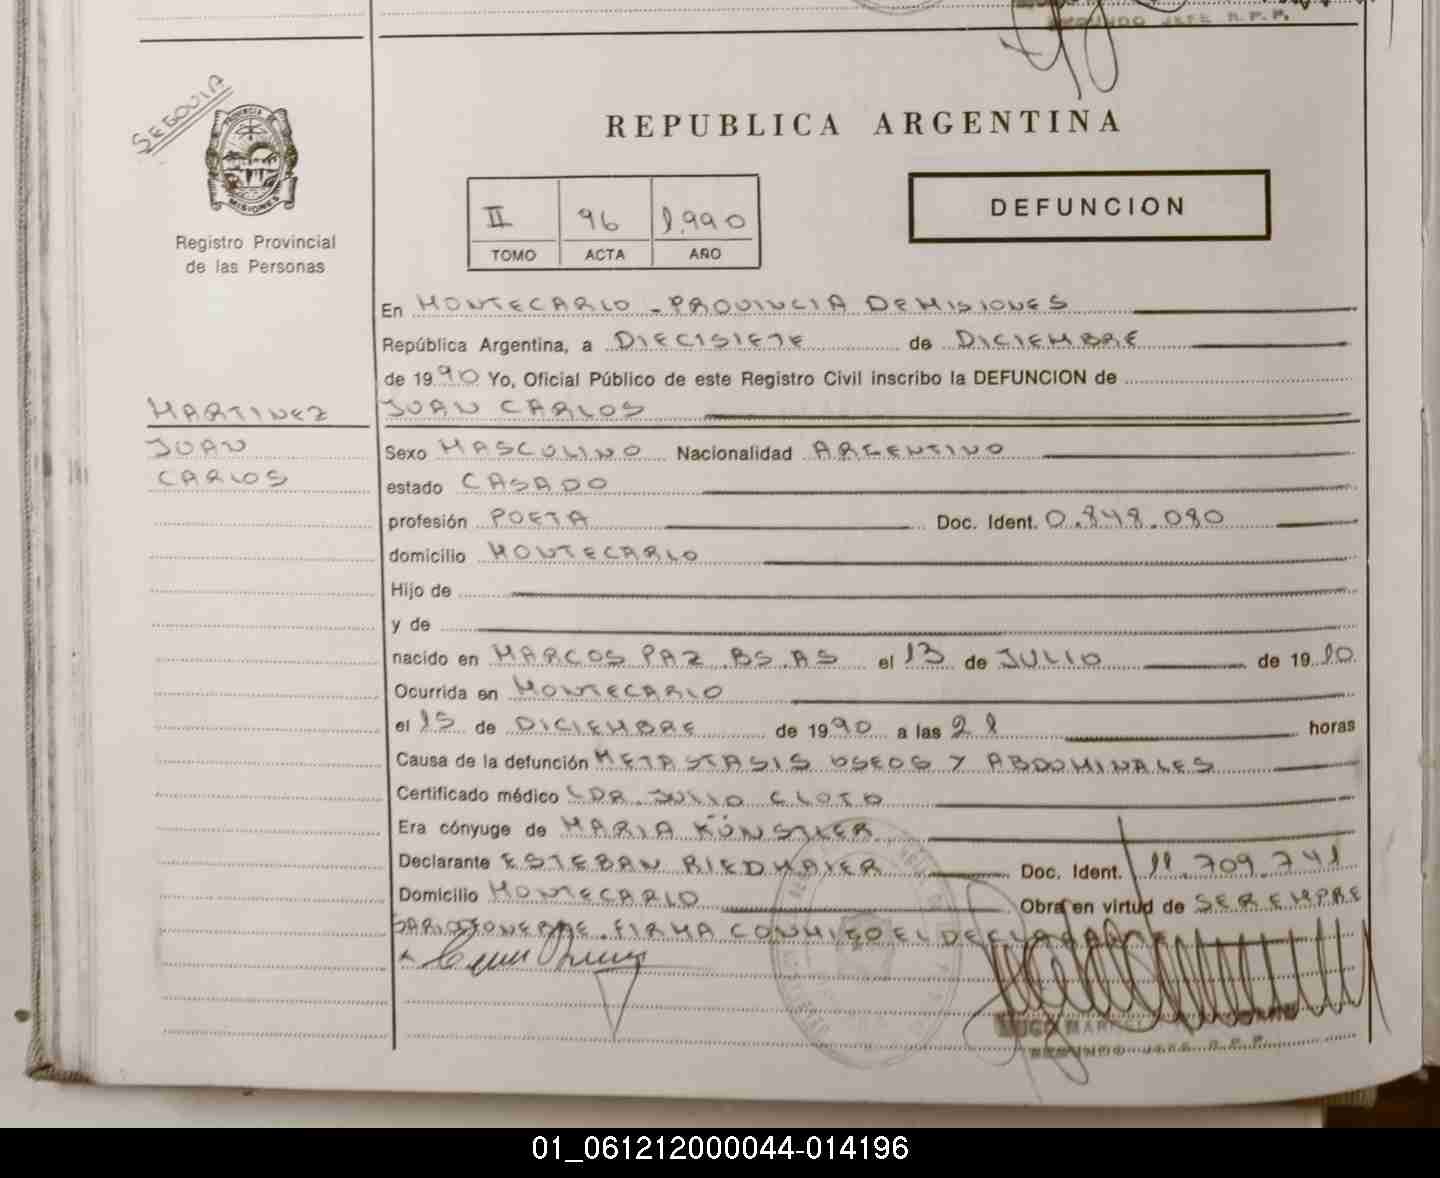 SEGUNDO JEFE R.P.P.
SEGOVIA
PROVINCIA DE
MISIONES
Registro Provincial
de las Personas
REPUBLICA ARGENTINA
II 96 1.990
TOMO ACTA AÑO
DEFUNCION
En MONTECARLO - PROVINCIA DE MISIONES
República Argentina, a DIECISIETE de DICIEMBRE
de 1990 Yo, Oficial Público de este Registro Civil inscribo la DEFUNCION de
MARTINEZ JUAN CARLOS
JUAN Sexo MASCULINO Nacionalidad ARGENTINO
CARLOS estado CASADO
profesión POETA Doc. Ident. 0.848.080
domicilio MONTECARLO
Hijo de
y de
nacido en MARCOS PAZ.BS.AS el 13 de JULIO de 1910
Ocurrida en MONTECARLO
el 15 de DICIEMBRE de 1990 a las 21 horas
Causa de la defunción METASTASIS OSEOS Y ABDOMINALES
Certificado médico DR. JULIO
Era cónyuge de MARIA KÜNSTLER
Declarante ESTEBAN RIEDMAIER Doc. Ident. 11.709.741
Domicilio MONTECARLO Obra en virtud de SER EMPRE
SARIO FONEBRE. FIRMA CONMIGO EL DECLARANTE
SEGUNDO JEFE R.P.P.
01_061212000044-014196